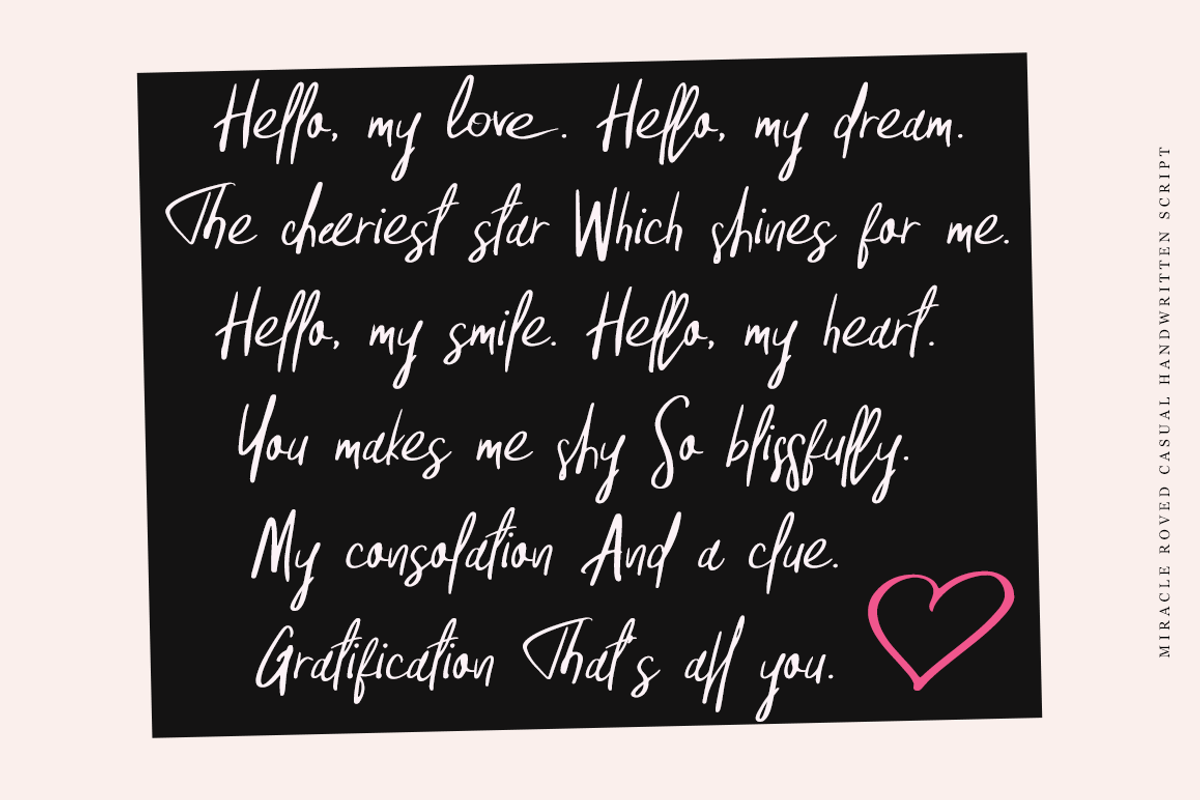 Hello, my love. Hello, my dream.
The cheeriest star Which shines for me.
Hello, my smile. Hello, my heart.
You makes me shy So blissfully.
My consolation And a clue.
Gratification That's all you.
MIRACLE ROVED CASUAL HANDWRITTEN SCRIPT